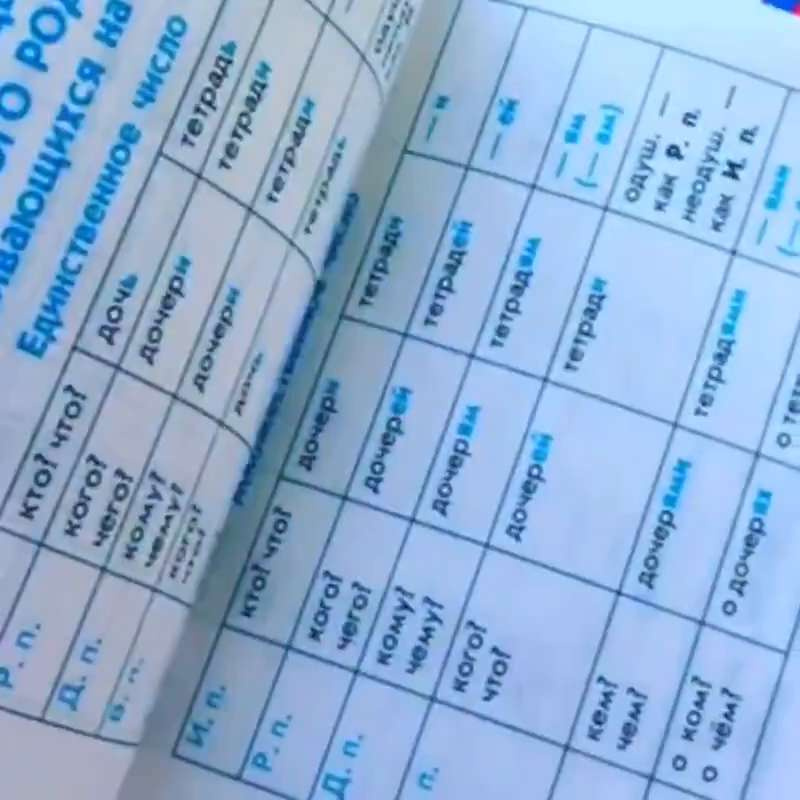 ОГО РОД
ВАЮЩИХСЯ НА
Единственное число
кто? что? дочь тетрадь
Р. п. кого? чего? дочери тетради
Д. п. кому? чему? дочери тетради
В. п. кого? что? дочь тетрадь
И. п. кто? что? дочери тетради — и
Р. п. кого? чего? дочерей тетрадей — ей
Д. п. кому? чему? дочерям тетрадям — ям (— ам)
п. кого? что? дочерей тетради одуш. — как Р. п. неодуш. — как И. п.
кем? чем? дочерями тетрадями — ями
о ком? о чём? о дочерях о тетр